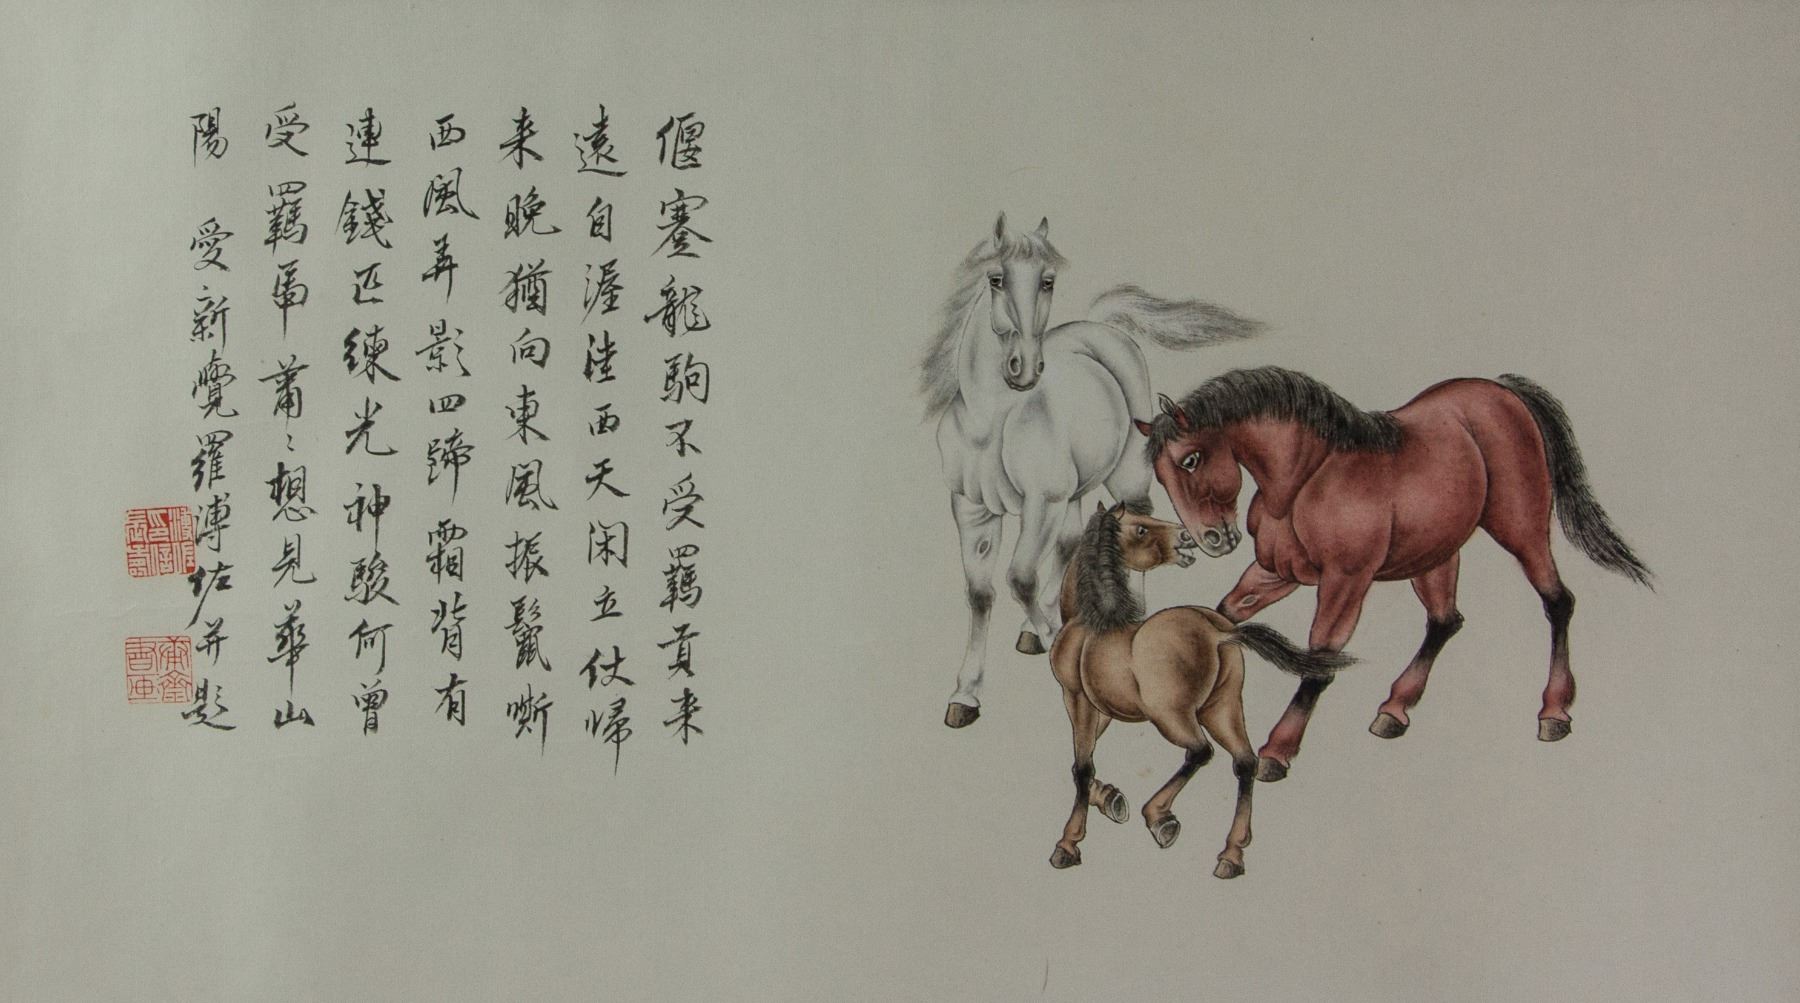 偃蹇龍駒不受羈貢来
遠自渥洼西天闲立仗歸
来晚猶向東風振鬣嘶
西風弄影四蹄霜背有
連錢匹練光神駿何曾
受羈馽蕭〻想見華山
陽 愛新覺羅溥佐并題